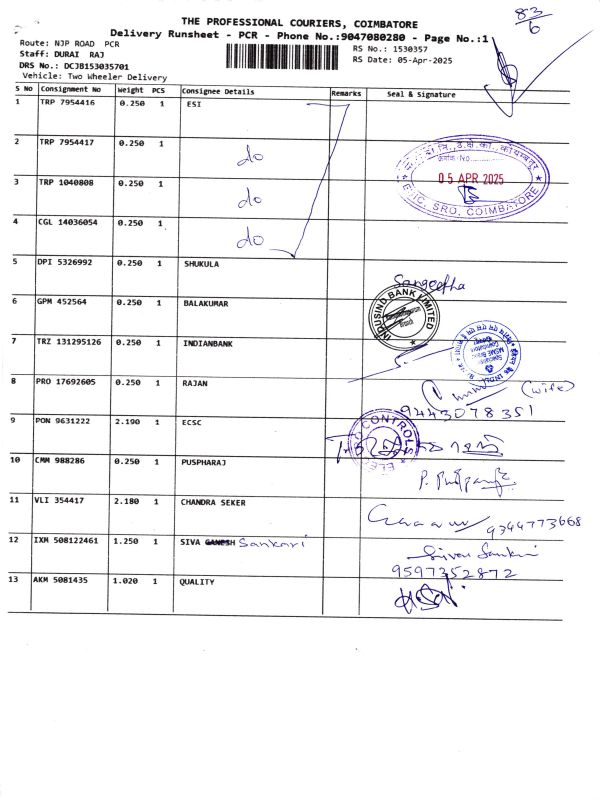 83/6
THE PROFESSIONAL COURIERS, COIMBATORE
Delivery Runsheet - PCR - Phone No.:9047080280 - Page No.:1
Route: NJP ROAD PCR
Staff: DURAI RAJ
DRS No.: DCJB153035701
Vehicle: Two Wheeler Delivery
RS No.: 1530357
RS Date: 05-Apr-2025
S No Consignment No Weight PCS Consignee Details Remarks Seal & Signature
1 TRP 7954416 0.250 1 ESI
2 TRP 7954417 0.250 1 do
3 TRP 1040808 0.250 1 do
4 CGL 14036054 0.250 1 do
05 APR 2025
SRO, COIMBATORE
5 DPI 5326992 0.250 1 SHUKULA Sangeetha
6 GPM 452564 0.250 1 BALAKUMAR
INDUSIND BANK LIMITED
7 TRZ 131295126 0.250 1 INDIANBANK
8 PRO 17692605 0.250 1 RAJAN (wife)
9443078351
9 PON 9631222 2.190 1 ECSC
CONTROLS
10 CMM 988286 0.250 1 PUSPHARAJ
11 VLI 354417 2.180 1 CHANDRA SEKER 9344773668
12 IXM 508122461 1.250 1 SIVA GANESH Sankari Siva Sankari
9597352872
13 AKM 5081435 1.020 1 QUALITY